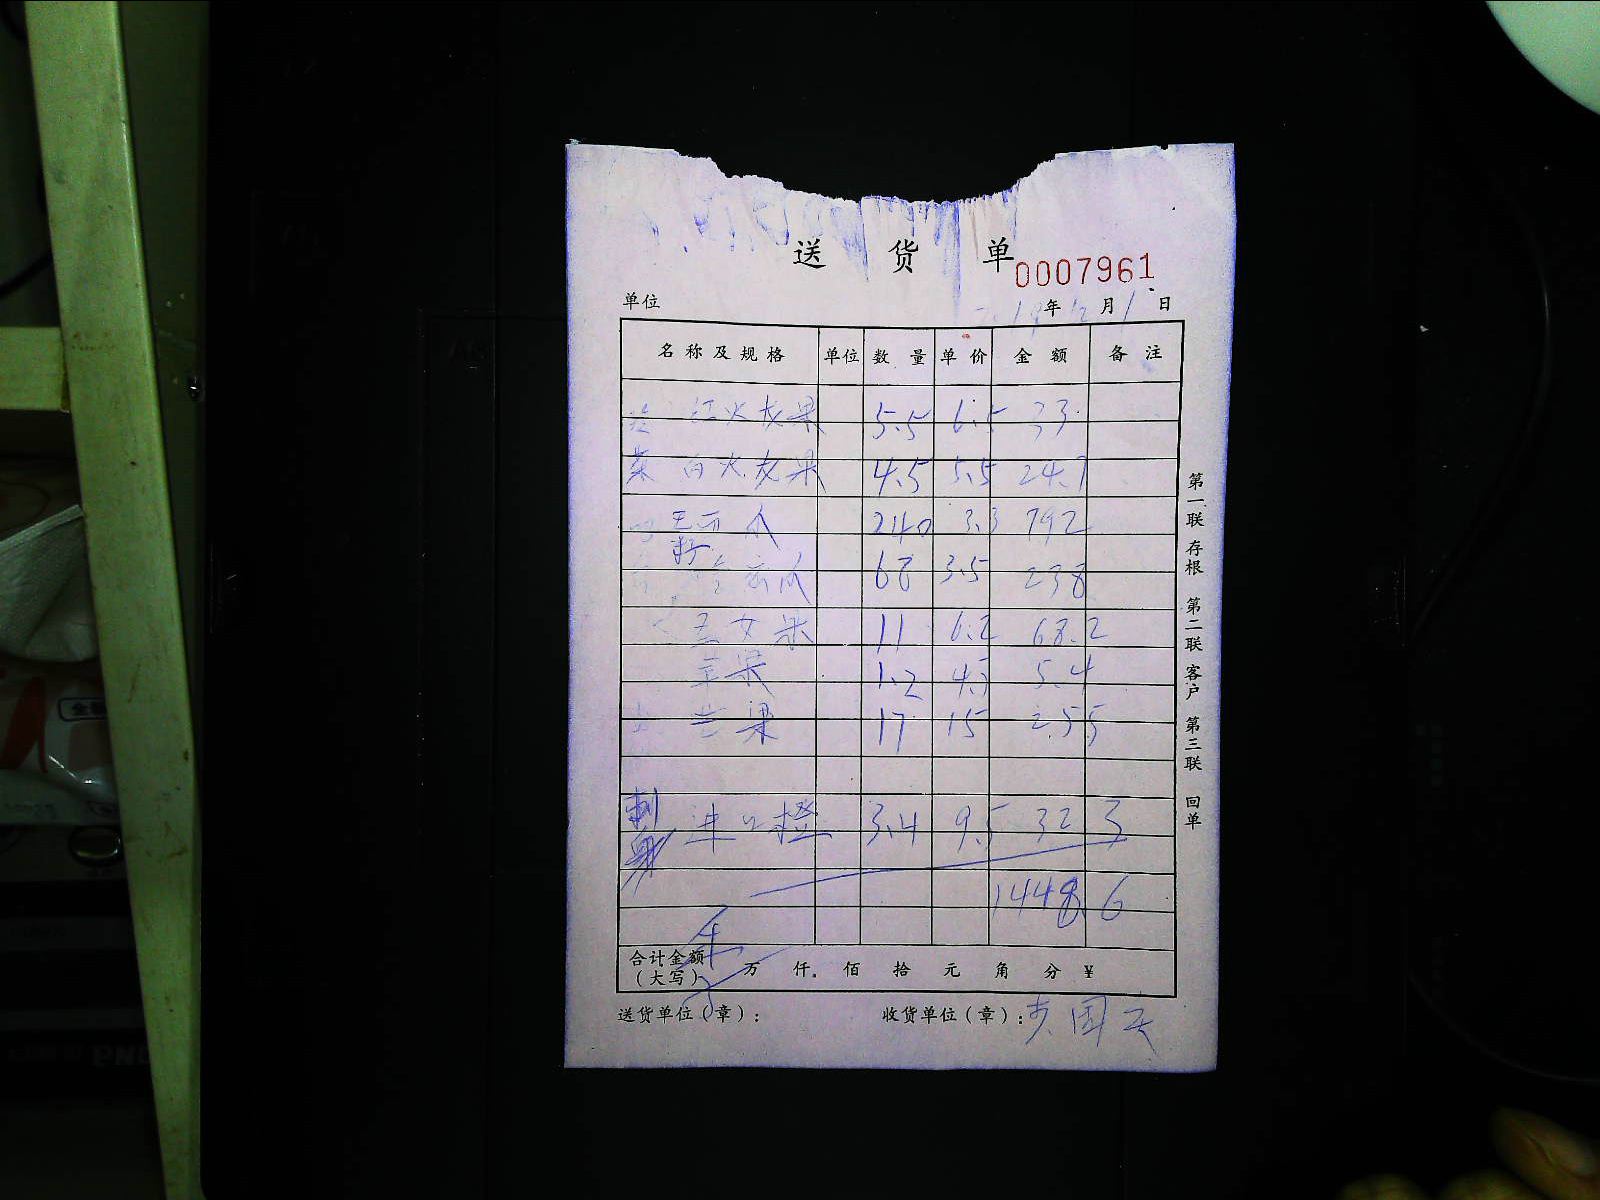 送 货 单
0007961
单位 年 月 日
名称及规格 单位 数量 单价 金额 备注
红火龙果 5.5 6.5 33
菜 白火龙果 4.5 5.5 24.7
西瓜 240 3.3 792
68 3.5 238
11 6.2 68.2
苹果 1.2 4.5 5.4
芒果 17 15 255
刺身 进口橙 3.4 9.5 32 3
1448.6
合计金额（大写） 万 仟 佰 拾 元 角 分 ¥
送货单位（章）： 收货单位（章）：
第一联 存根 第二联 客户 第三联 回单